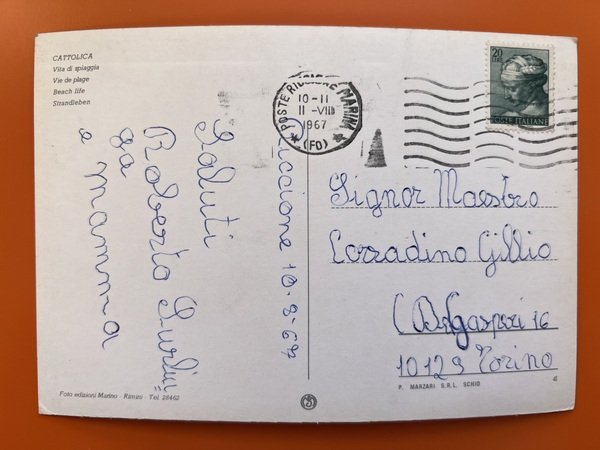 CATTOLICA
Vita di spiaggia
Vie de plage
Beach life
Strandleben
20
LIRE
POSTE ITALIANE
POSTE RICCIONE MARINA
10-11
1967
(FO)
Riccione 10.8.67
Saluti
Roberto
da
e mamma
Signor Maestro
Corradino Gillio
16
10129 Torino
P. MARZARI S.R.L. SCHIO
Foto edizioni Marino - Rimini - Tel. 28462